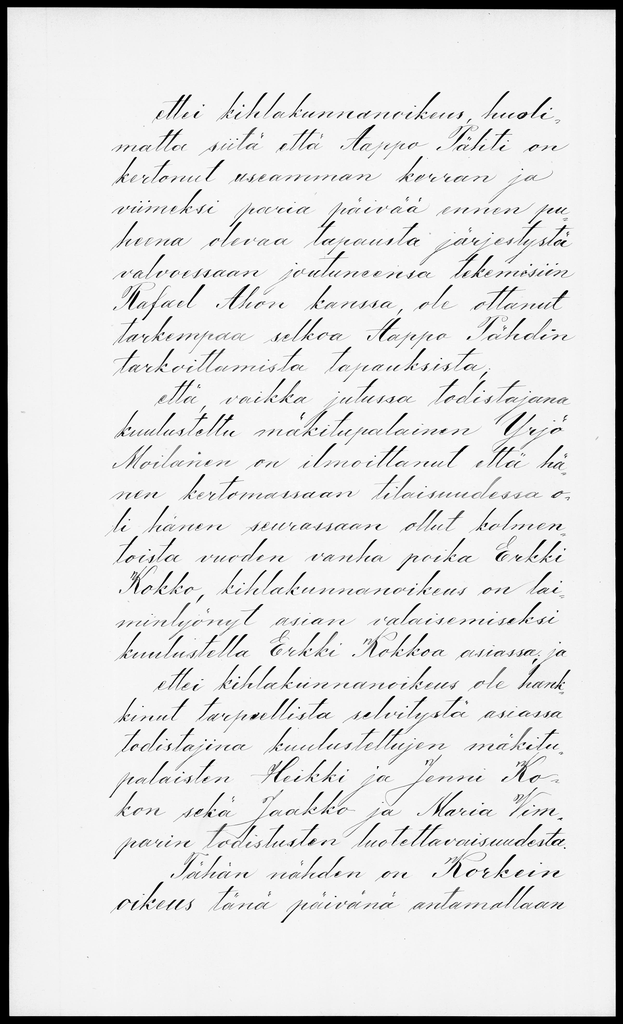 ettei kihlakunnanoikeus, huoli-
matta siitä että Aappo Tähti on
kertonut useamman korran ja
viimeksi paria päivää ennen pu-
heena olevaa tapausta järjestystä
valvoessaan joutuneensa tekemisiin
Rafael Ahon kanssa, ole ottanut
tarkempaa selkoa Aappo Tähdin
tarkoittamista tapauksista;
että, vaikka jutussa todistajana
kuulustettu mäkitupalainen Yrjö
Moilanen on ilmoittanut että hä-
nen kertomassaan tilaisuudessa o-
li hänen seurassaan ollut kolmen-
toista vuoden vanha poika Erkki
Kokko, kihlakunnanoikeus on lai-
minlyönyt asian valaisemiseksi
kuulustella Erkki Kokkoa asiassa; ja
ettei kihlakunnanoikeus ole hank-
kinut tarpeellista selvitystä asiassa
todistajina kuulustettujen mäkitu-
palaisten Heikki ja Jenni Ko-
kon sekä Jaakko ja Maria Vim-
parin todistusten luotettavaisuudesta.
Tähän nähden on Korkein
oikeus tänä päivänä antamallaan